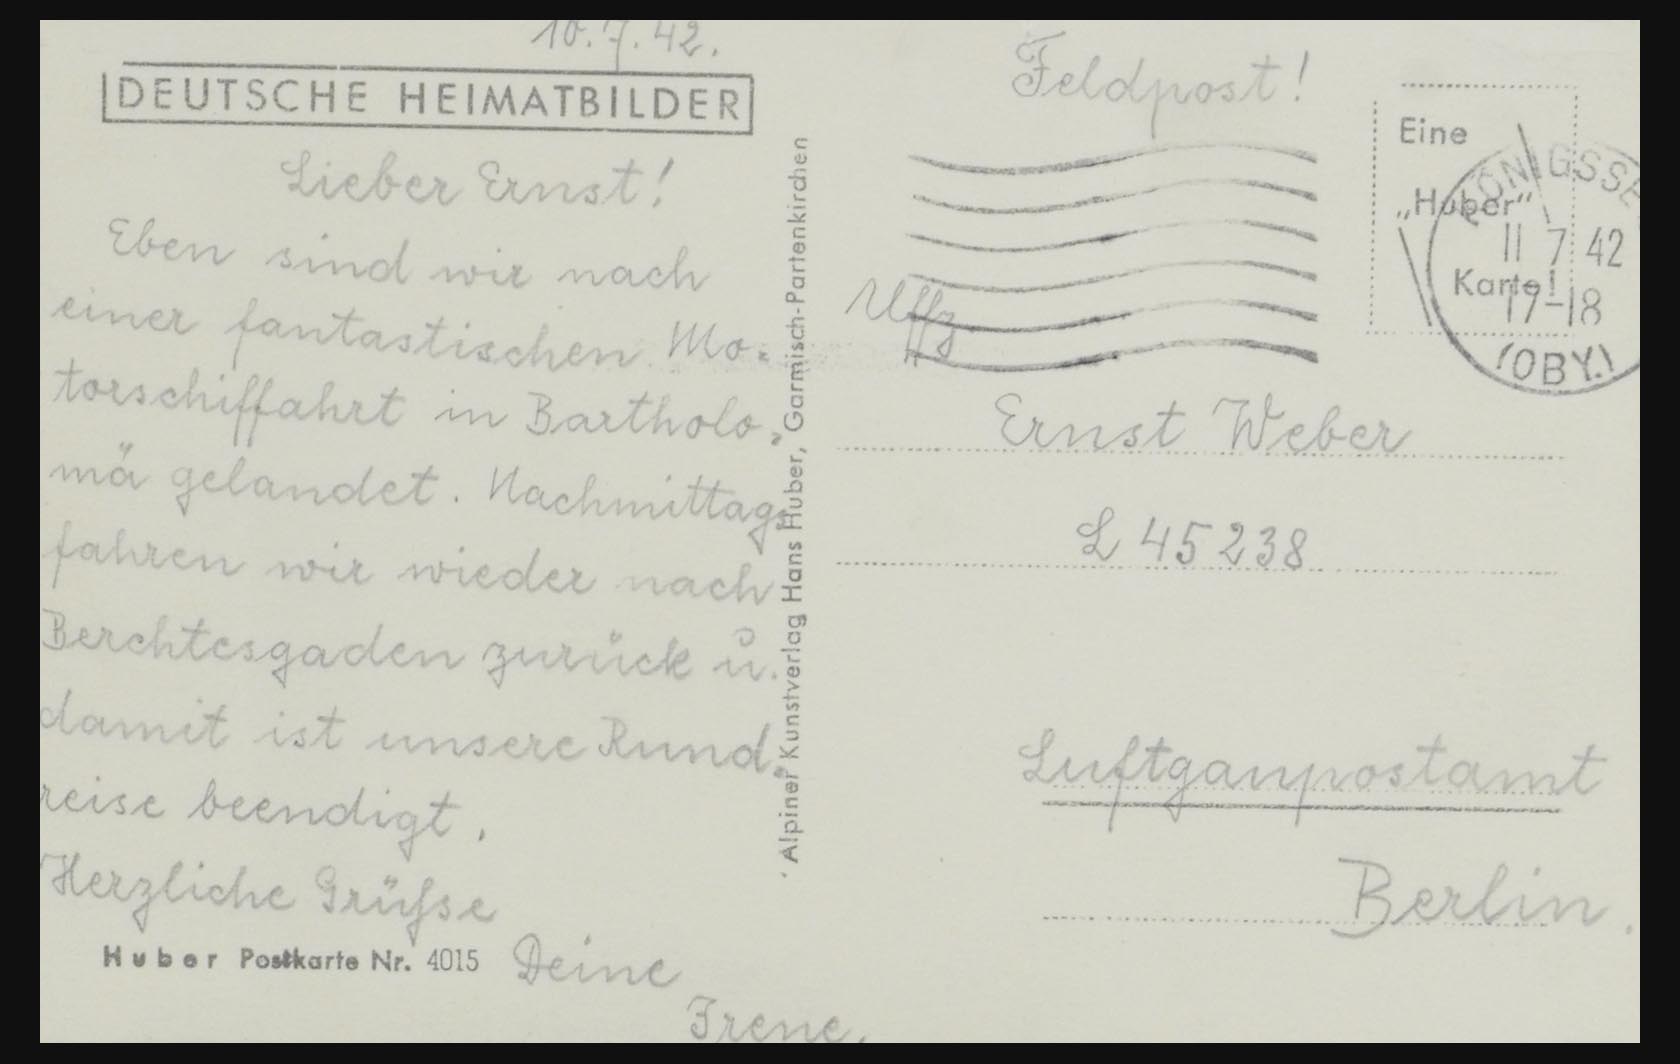 10.7.42.
DEUTSCHE HEIMATBILDER
Lieber Ernst!
Eben sind wir nach
einer fantastischen Mo-
torschiffahrt in Bartholo-
mä gelandet. Nachmittags
fahren wir wieder nach
Berchtesgaden zurück u.
damit ist unsere Rund-
reise beendigt.
Herzliche Grüße
Huber Postkarte Nr. 4015
Deine
Irene.
Alpiner Kunstverlag Hans Huber, Garmisch-Partenkirchen
Feldpost!
Eine
„Huber"
Karte!
KÖNIGSSE
11 7 42
17-18
(OBY.)
Uffz
Ernst Weber
L 45238
Luftgaupostamt
Berlin.